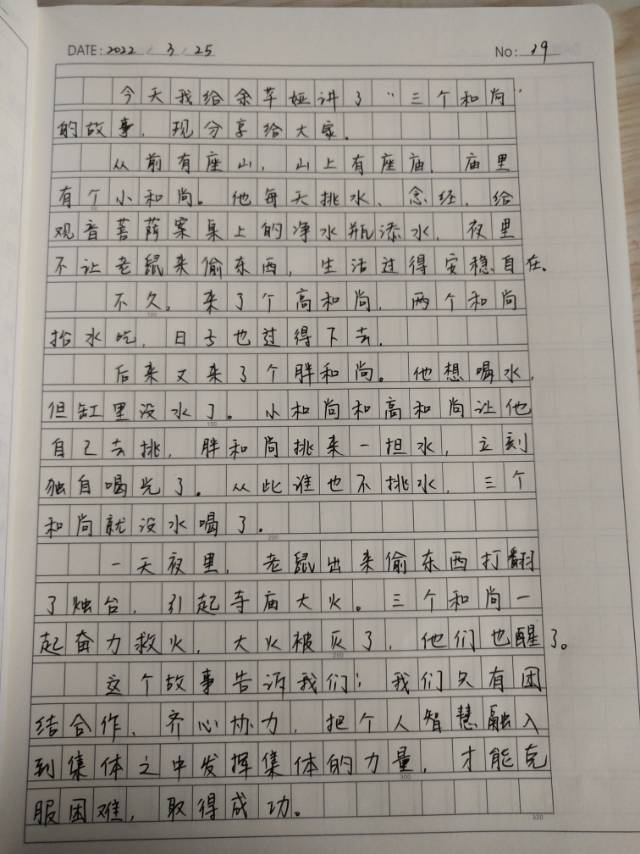 DATE: 2022 / 3 / 25 No: 19
今天我给余苹娅讲了“三个和尚”
的故事，现分享给大家．
从前有座山，山上有座庙，庙里
有个小和尚。他每天挑水、念经，给
观音菩萨案桌上的净水瓶添水，夜里
不让老鼠来偷东西，生活过得安稳自在．
不久，来了个高和尚，两个和尚
抬水吃，日子也过得下去．
后来又来了个胖和尚。他想喝水，
但缸里没水了。小和尚和高和尚让他
自己去挑，胖和尚挑来一担水，立刻
独自喝光了。从此谁也不挑水，三个
和尚就没水喝了．
一天夜里，老鼠出来偷东西打翻
了烛台，引起寺庙大火。三个和尚一
起奋力救火，大火被灰了，他们也醒了。
这个故事告诉我们：我们只有团
结合作、齐心协力，把个人智慧融入
到集体之中发挥集体的力量，才能克
服困难，取得成功。